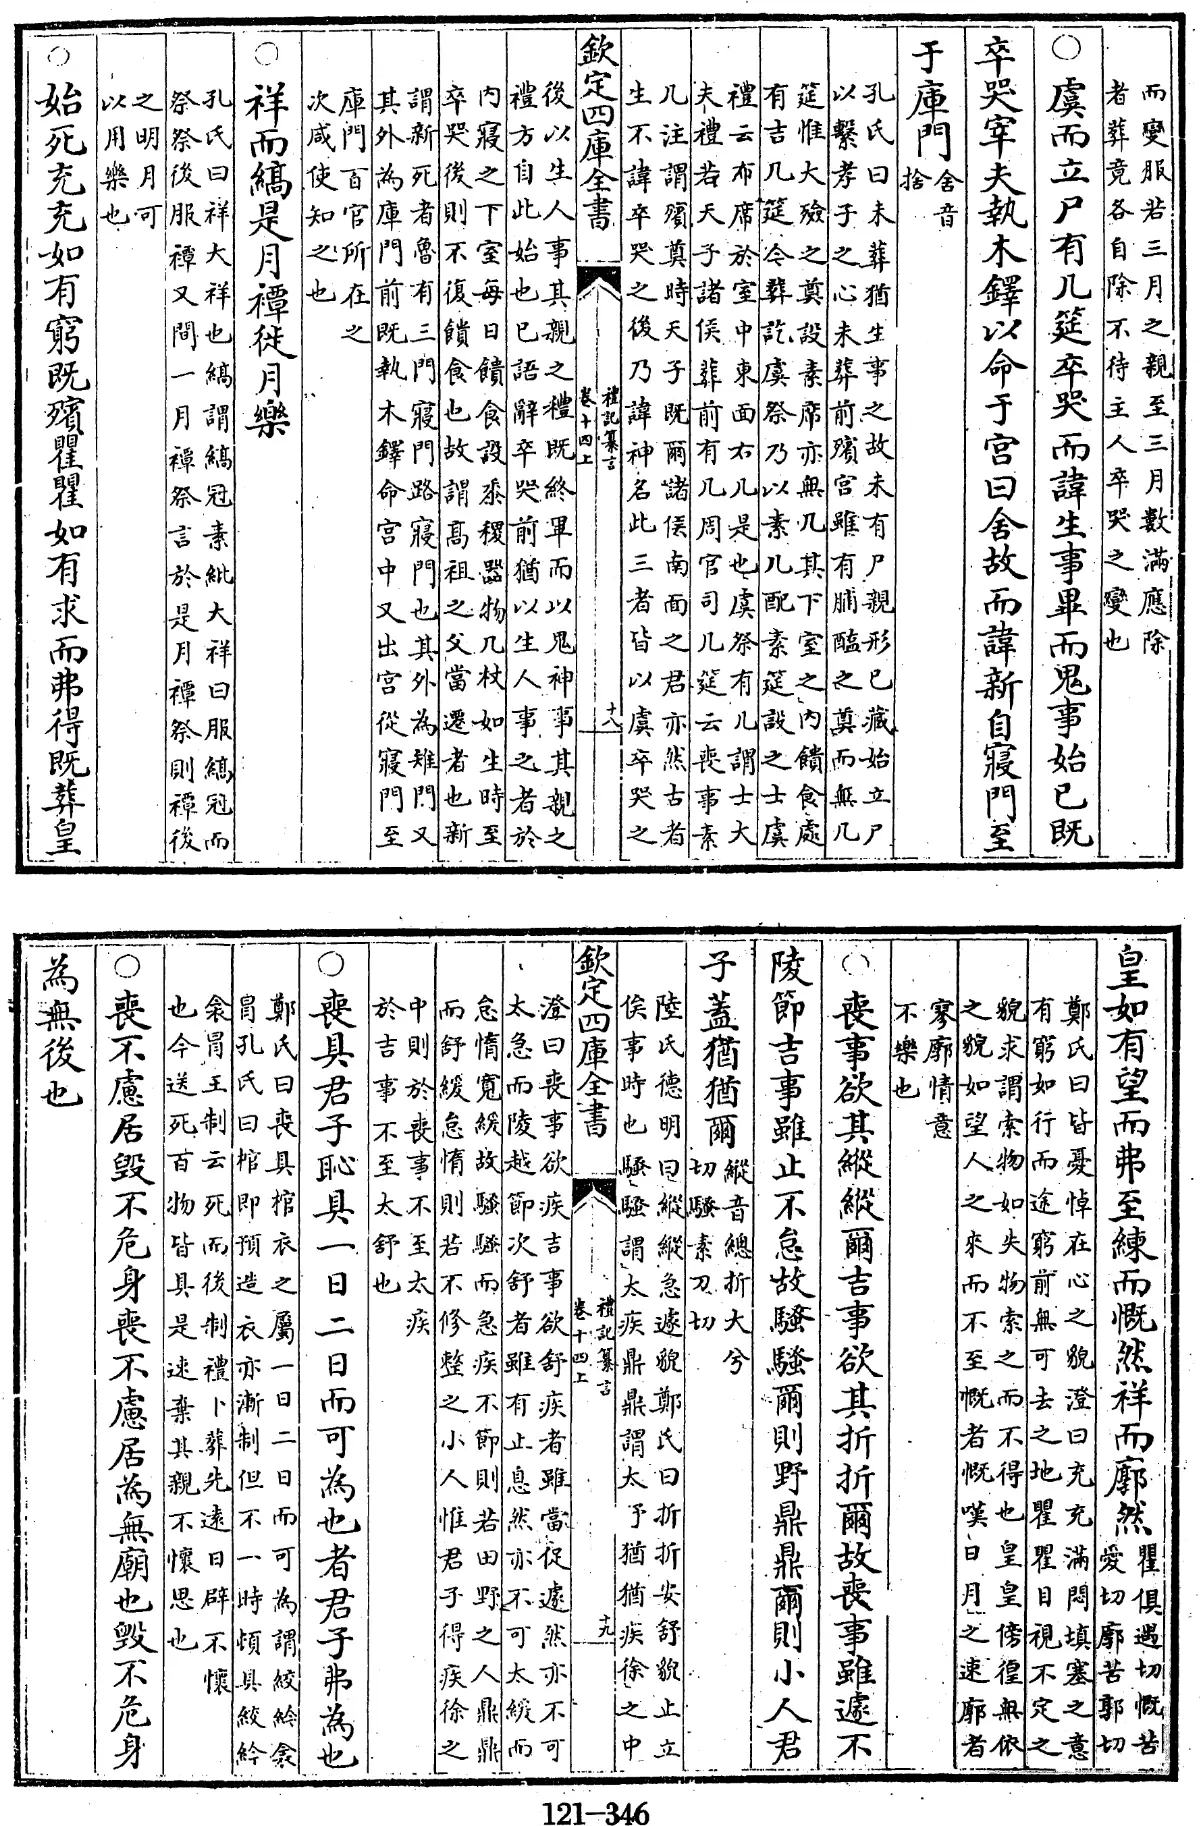 而變服若三月之親至三月數滿應除
者葬竟各自除不待主人卒哭之變也
○虞而立尸有几筵卒哭而諱生事畢而鬼事始已既
卒哭宰夫執木鐸以命于宫曰舍故而諱新自寢門至
于庫門舍音捨
孔氏曰未葬猶生事之故未有尸親形已藏始立尸
以繫孝子之心未葬前殯宫雖有脯醢之奠而無几
筵惟大殮之奠設素席亦無几其下室之内饋食處
有吉几筵今葬訖虞祭乃以素几配素筵設之士虞
禮云布席於室中東面右几是也虞祭有几謂士大
夫禮若天子諸侯葬前有几周官司几筵云喪事素
几注謂殯奠時天子既爾諸侯南面之君亦然古者
生不諱卒哭之後乃諱神名此三者皆以虞卒哭之
欽定四庫全書
禮記纂言
卷十四上
十八
後以生人事其親之禮既終畢而以鬼神事其親之
禮方自此始也已語辭卒哭前猶以生人事之者於
内寢之下室每日饋食設黍稷器物几杖如生時至
卒哭後則不復饋食也故謂髙祖之父當遷者也新
謂新死者魯有三門寢門路寢門也其外為雉門又
其外為庫門前既執木鐸命宫中又出宫從寢門至
庫門百官所在之
次咸使知之也
○祥而縞是月禫徙月樂
孔氏曰祥大祥也縞謂縞冠素紕大祥日服縞冠而
祭祭後服禫又間一月禫祭言於是月禫祭則禫後
之明月可
以用樂也
○始死充充如有窮既殯瞿瞿如有求而弗得既葬皇
皇如有望而弗至練而慨然祥而廓然瞿俱遇切慨苦
愛切廓苦郭切
鄭氏曰皆憂悼在心之貌澄曰充充滿悶填塞之意
有窮如行而途窮前無可去之地瞿瞿目視不定之
貌求謂索物如失物索之而不得也皇皇傍徨無依
之貌如望人之來而不至慨者慨嘆日月之速廓者
寥廓情意
不樂也
○喪事欲其縱縱爾吉事欲其折折爾故喪事雖遽不
陵節吉事雖止不怠故騷騷爾則野鼎鼎爾則小人君
子蓋猶猶爾縱音總折大兮
切騷素刀切
陸氏德明曰縱縱急遽貌鄭氏曰折折安舒貌止立
俟事時也騷騷謂太疾鼎鼎謂太予猶猶疾徐之中
欽定四庫全書
禮記纂言
卷十四上
十九
澄曰喪事欲疾吉事欲舒疾者雖當促遽然亦不可
太急而陵越節次舒者雖有止息然亦不可太緩而
怠惰寬緩故騷騷而急疾不節則若田野之人鼎鼎
而舒緩怠惰則若不修整之小人惟君子得疾徐之
中則於喪事不至太疾
於吉事不至太舒也
○喪具君子恥具一日二日而可為也者君子弗為也
鄭氏曰喪具棺衣之屬一日二日而可為謂絞紟衾
冒孔氏曰棺即預造衣亦漸制但不一時頓具絞紟
衾冒王制云死而後制禮卜葬先遠日辟不懷
也今送死百物皆具是速棄其親不懷思也
○喪不慮居毁不危身喪不慮居為無廟也毁不危身
為無後也
121-346